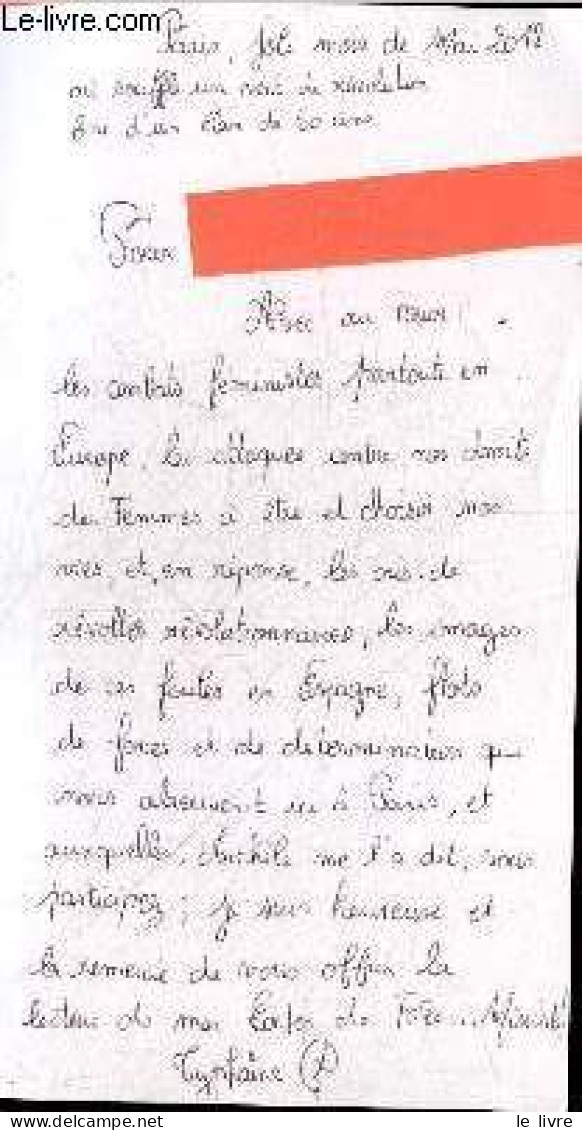 Le-livre.com
Paris, joli mois de Mai 2012
où souffle un vent de révolution
Pour
Avec au cœur
les combats féministes partout en
Europe, les attaques contre nos droits
de Femmes à être et choisir nos
vies, et, en réponse, les cris de
révoltes révolutionnaires, les images
de ces foules en Espagne, flots
de forces et de détermination qui
nous abreuvent ici à Paris, et
auxquelles, me l'a dit, vous
participez ; je suis heureuse et
de vous offrir la
lecture de mes de
le livre